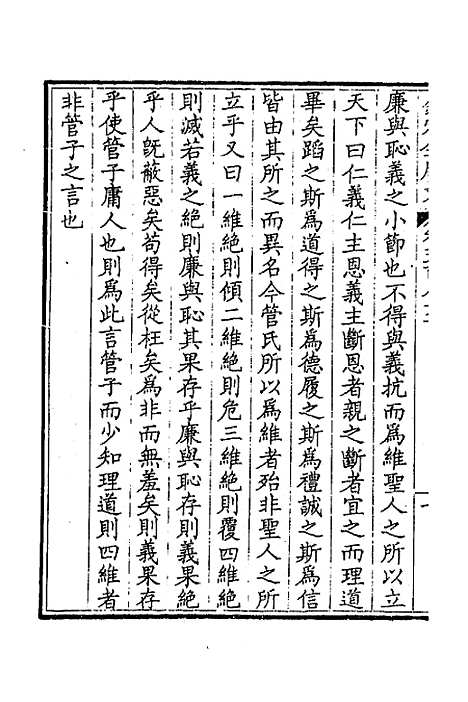 廉與恥義之小節也不得與義抗而為維聖人之所以立
天下曰仁義仁主恩義主斷恩者親之斷者宜之而理道
畢矣蹈之斯為道得之斯為德履之斯為禮誠之斯為信
皆由其所之而異名今管氏所以為維者殆非聖人之所
立乎又曰一維絶則傾二維絶則危三維絶則覆四維絶
則滅若義之絶則廉與恥其果存乎廉與恥存則義果絶
乎人既蔽惡矣茍得矣從枉矣為非而無羞矣則義果存
乎使管子庸人也則為此言管子而少知理道則四維者
非管子之言也